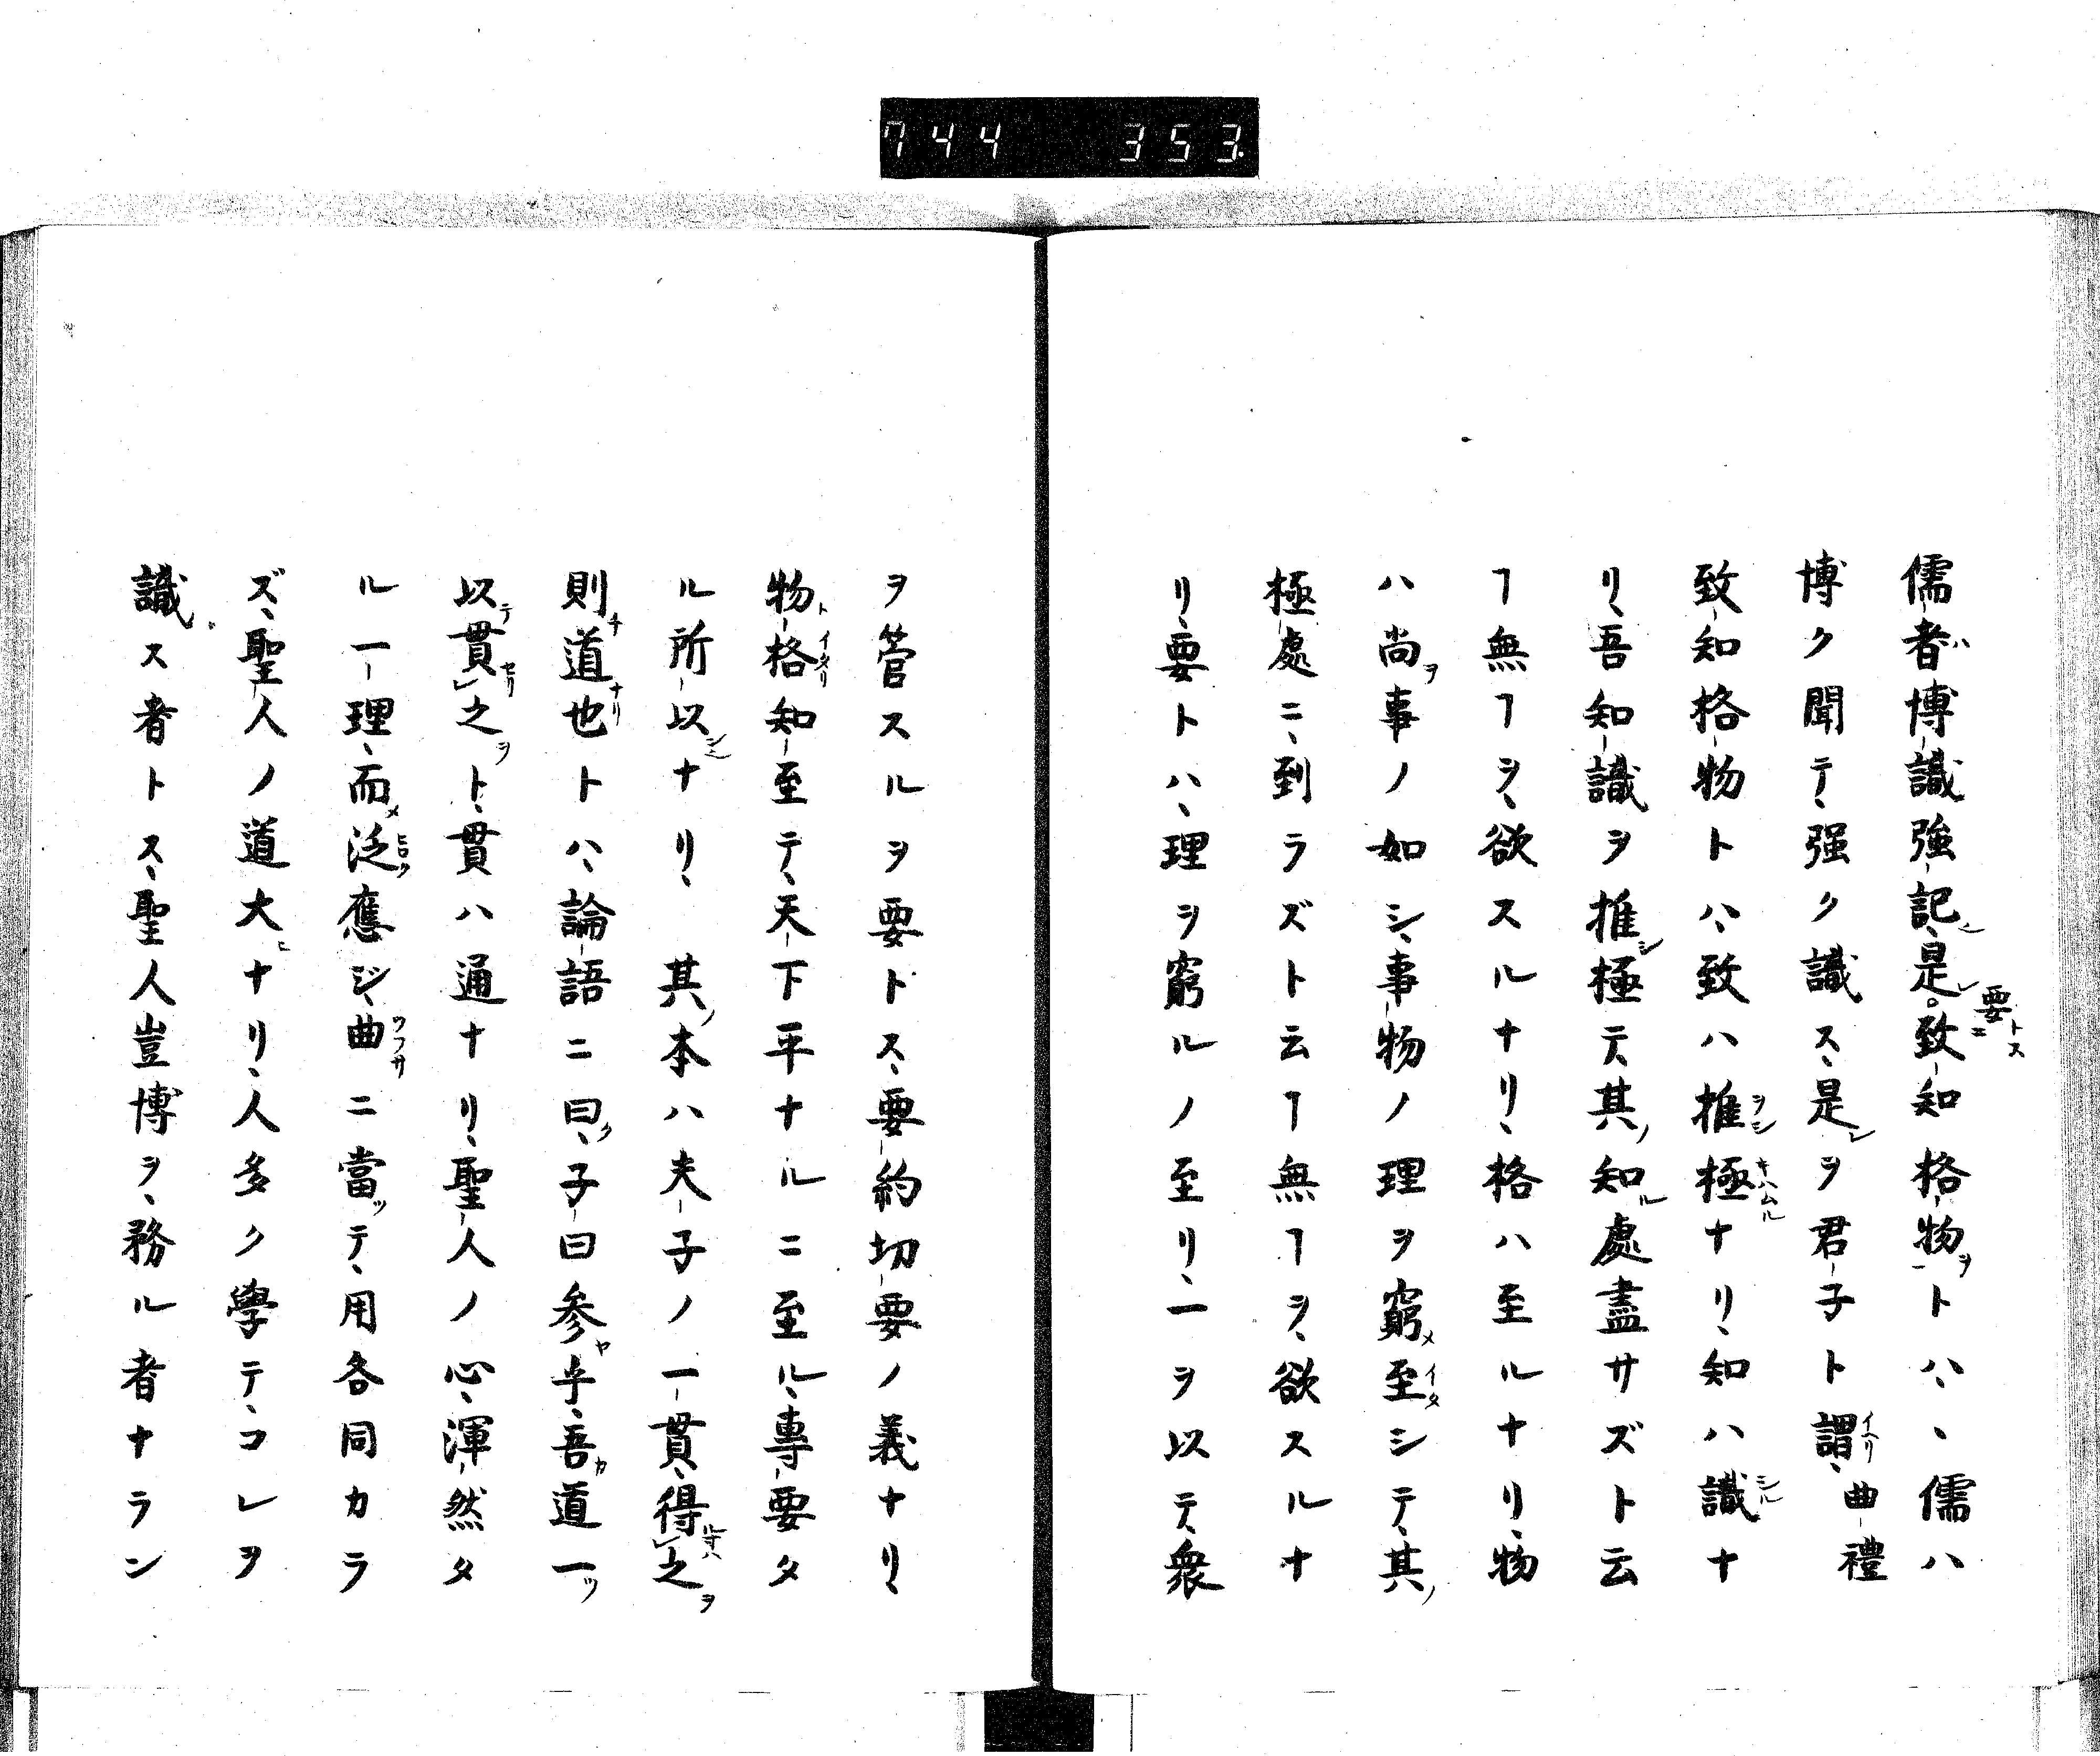 744 353.
儒者ハ博識強記シ是レ要トス致知格物ヲトハ、儒ハ
博ク聞テ、强ク識ス、是レヲ君子ト謂イヘリ、曲禮
致知格物トハ、致ハ推ヲシ極キハムルナリ、知ハ識シルナ
リ、吾知識ヲ推シ極テ、其ノ知ル處盡サズト云
ヿ無ヿヲ、欲スルナリ、格ハ至ルナリ、物
ハ尚ヲ事ノ如シ、事物ノ理ヲ窮メ至イタシテ、其ノ
極處ニ、到ラズト云ヿ無ヿヲ、欲スルナ
リ、要トハ、理ヲ窮ルノ至リ、一ヲ以テ、衆
ヲ管スルヲ要トス、要約切要ノ義ナリ、
物ト格イタリ知至テ、天下平ナルニ至ル、專要タ
ル所以ナリ、其ノ本ハ夫子ノ一貫、得ルトキハ之ヲ
則チ道也ナリトハ、論語ニ曰ク、子曰参ヤ乎、吾カ道一ツ
以テ貫セリ之ヲト、貫ハ通ナリ、聖人ノ心、渾然タ
ル一理、而メ泛ヒロク應ジ、曲ツフサニ當ツテ、用各同カラ
ズ、聖人ノ道大ヒナリ、人多ク學テ、コレヲ
識ス者トス、聖人豈博ヲ、務ル者ナラン